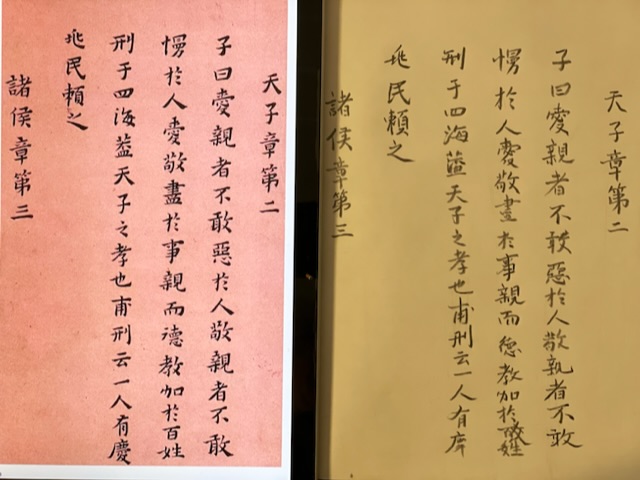 天子章第二
子曰愛親者不敢惡於人敬親者不敢
慢於人愛敬盡於事親而德教加於百姓
刑于四海蓋天子之孝也甫刑云一人有慶
兆民賴之
諸侯章第三
天子章第二
子曰愛親者不敢惡於人敬者不敢
慢於人愛敬盡於事親而德教加於姓
刑于四海蓋天子之孝也甫刑云一人有
兆民賴之
諸侯章第三